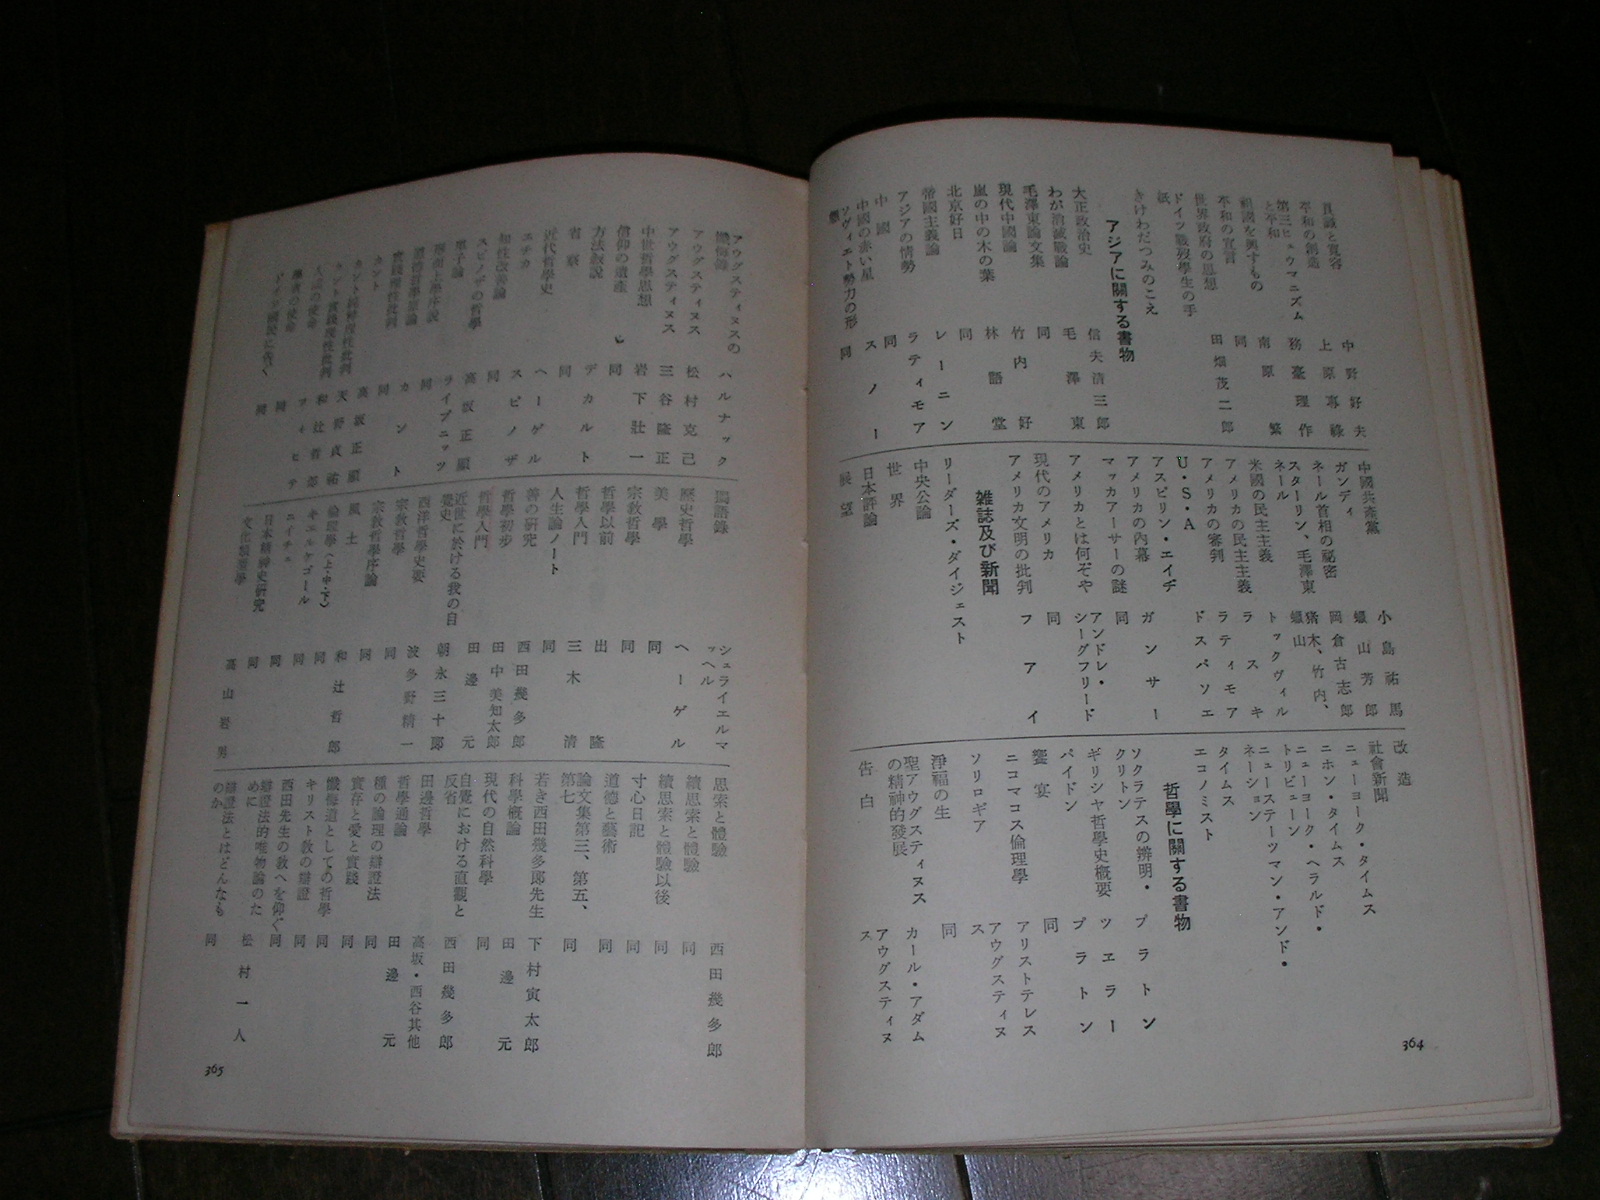 良識と寛容　中野好夫
平和の創造　上原專祿
第三ヒュウマニズムと平和　務臺理作
祖國を興すもの　南原繁
平和の宣言　同
世界政府の思想　田畑茂二郎
ドイツ戰歿學生の手紙
きけわだつみのこえ
アジアに關する書物
大正政治史　信夫清三郎
わが消滅戰論　毛澤東
毛澤東論文集　同
現代中國論　竹内好
嵐の中の木の葉　林語堂
北京好日　同
帝國主義論　レーニン
アジアの情勢　ラティモア
中國　同
中國の赤い星　スノー
ソヴィエト勢力の形態　同
中國共產黨　小島祐馬
ガンディ　蠟山芳郎
ネール首相の祕密　岡倉古志郎
スターリン、毛澤東　猪木、竹内、
ネール　蠟山
米國の民主主義　トックヴィル
アメリカの民主主義　ラスキ
アメリカの審判　ラティモア
U・S・A　ドスパソエ
アスピリン・エイヂ
アメリカの内幕　ガンサー
マッカアーサーの謎　同
アメリカとは何ぞや　アンドレ・シーグフリード
現代のアメリカ　同
アメリカ文明の批判　ファイ
雑誌及び新聞
リーダーズ・ダイジェスト
中央公論
世界
日本評論
展望
改造
社會新聞
ニューヨーク・タイムス
ニホン・タイムス
ニューヨーク・ヘラルド・トリビューン
ニューステーツマン・アンド・ネーション
タイムス
エコノミスト
哲學に關する書物
ソクラテスの辨明・クリトン　プラトン
ギリシヤ哲學史概要　ツエラー
パイドン　プラトン
饗宴　同
ニコマコス倫理學　アリストテレス
ソリロギア　アウグスティヌス
淨福の生　同
聖アウグスティヌスの精神的發展　カール・アダム
告白　アウグスティヌス
364
アウグスティヌスの懺悔錄　ハルナック
アウグスティヌス　松村克己
アウグスティヌス　三谷隆正
中世哲學思想　岩下壯一
信仰の遺產　同
方法敍說　デカルト
省察　同
近代哲學史　ヘーゲル
エチカ　スピノザ
知性改善論　同
スピノザの哲學　高坂正顯
單子論　ライプニッツ
形而上學序說　同
道德哲學原論　カント
實踐理性批判　同
カント　高坂正顯
カント純粹理性批判　天野貞祐
カント實踐理性批判　和辻哲郎
人間の使命　フィヒテ
學者の使命　同
ドイツ國民に告ぐ　同
獨語錄　シュライエルマッヘル
歷史哲學　ヘーゲル
美學　同
宗敎哲學　同
哲學以前　出隆
哲學入門　三木清
人生論ノート　同
善の研究　西田幾多郎
哲學初步　田中美知太郎
哲學入門　田邊元
近世に於ける我の自覺史　朝永三十郎
西洋哲學史要　波多野精一
宗敎哲學　同
宗敎哲學序論　同
風土　和辻哲郎
倫理學（上・中・下）　同
キエルケゴール　同
ニイチェ　同
日本精神史硏究　同
文化類型學　高山岩男
思索と體驗　西田幾多郎
續思索と體驗　同
續思索と體驗以後　同
寸心日記　同
道德と藝術　同
論文集第三、第五、第七　同
若き西田幾多郎先生　下村寅太郎
科學槪論　田邊元
現代の自然科學　同
自覺における直觀と反省　西田幾多郎
田邊哲學　高坂・西谷其他
哲學通論　田邊元
種の論理の辯證法　同
實存と愛と實踐　同
懺悔道としての哲學　同
キリスト敎の辯證　同
西田先生の敎へを仰ぐ　同
辯證法的唯物論のために　松村一人
辯證法とはどんなものか　同
365